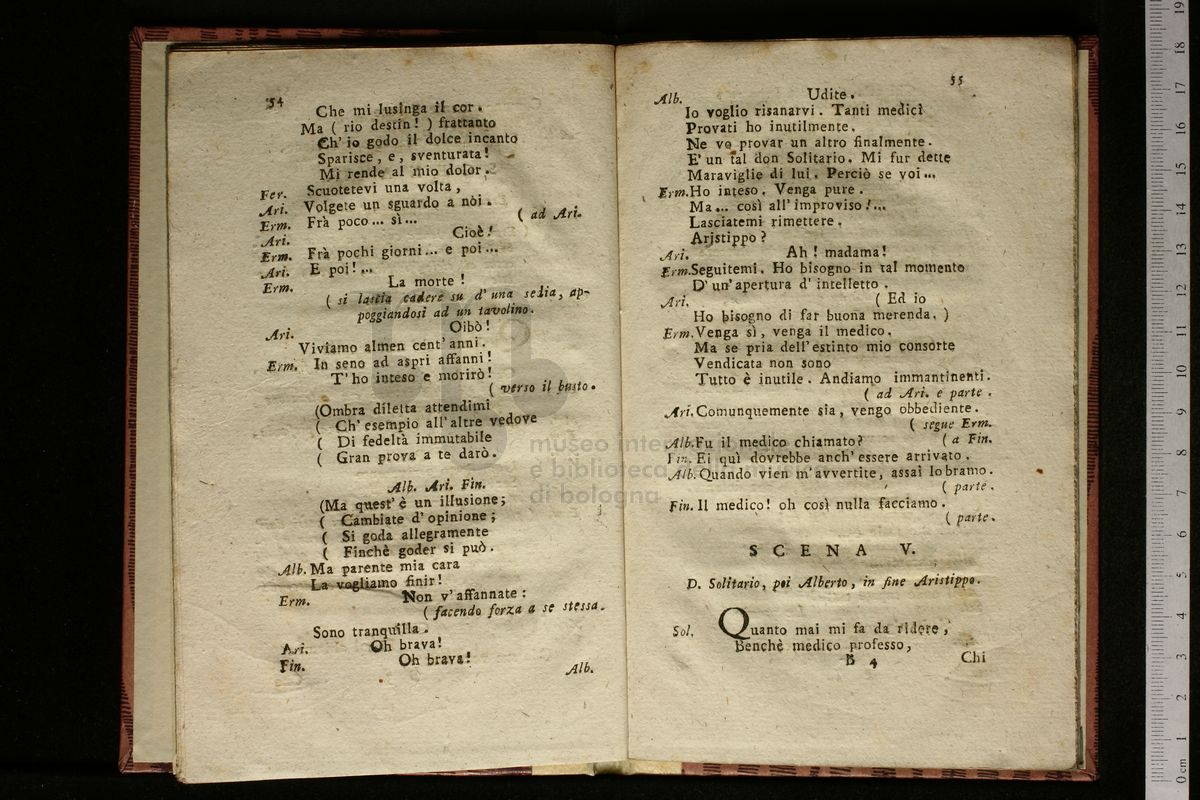 54
Che mi lusinga il cor.
Ma ( rio destin! ) frattanto
Ch' io godo il dolce incanto
Sparisce, e, sventurata!
Mi rende al mio dolor.
Fer. Scuotetevi una volta,
Ari. Volgete un sguardo a nòi.
Erm. Frà poco... sì... ( ad Ari.
Ari. Cioè!
Erm. Frà pochi giorni... e poi...
Ari. E poi!...
Erm. La morte!
( si lascia cadere su d' una sedia, ap-
poggiandosi ad un tavolino.
Ari. Oibò!
Viviamo almen cent' anni.
Erm. In seno ad aspri affanni!
T' ho inteso e morirò!
( verso il busto.
(Ombra diletta attendimi
( Ch' esempio all' altre vedove
( Di fedeltà immutabile
( Gran prova a te darò.
Alb. Ari. Fin.
(Ma quest' è un illusione;
( Cambiate d' opinione;
( Si goda allegramente
( Finchè goder si può.
Alb. Ma parente mia cara
La vogliamo finir!
Erm. Non v' affannate:
( facendo forza a se stessa.
Sono tranquilla.
Ari. Oh brava!
Fin. Oh brava!
Alb.
55
Alb. Udite.
Io voglio risanarvi. Tanti medici
Provati ho inutilmente.
Ne vo provar un altro finalmente.
E' un tal don Solitario. Mi fur dette
Maraviglie di lui. Perciò se voi...
Erm. Ho inteso. Venga pure.
Ma... così all' improviso!...
Lasciatemi rimettere.
Aristippo?
Ari. Ah! madama!
Erm. Seguitemi. Ho bisogno in tal momento
D' un' apertura d' intelletto.
Ari. ( Ed io
Ho bisogno di far buona merenda. )
Erm. Venga sì, venga il medico.
Ma se pria dell' estinto mio consorte
Vendicata non sono
Tutto è inutile. Andiamo immantinenti.
( ad Ari. e parte.
Ari. Comunquemente sia, vengo obbediente.
( segue Erm.
Alb. Fu il medico chiamato? ( a Fin.
Fin. Ei quì dovrebbe anch' essere arrivato.
Alb. Quando vien m' avvertite, assai lo bramo.
( parte.
Fin. Il medico! oh così nulla facciamo.
( parte.
SCENA V.
D. Solitario, poi Alberto, in fine Aristippo.
Sol. Quanto mai mi fa da ridere,
Benchè medico professo,
B 4
Chi
museo
e biblioteca
di bologna
0 cm 1 2 3 4 5 6 7 8 9 10 11 12 13 14 15 16 17 18 19